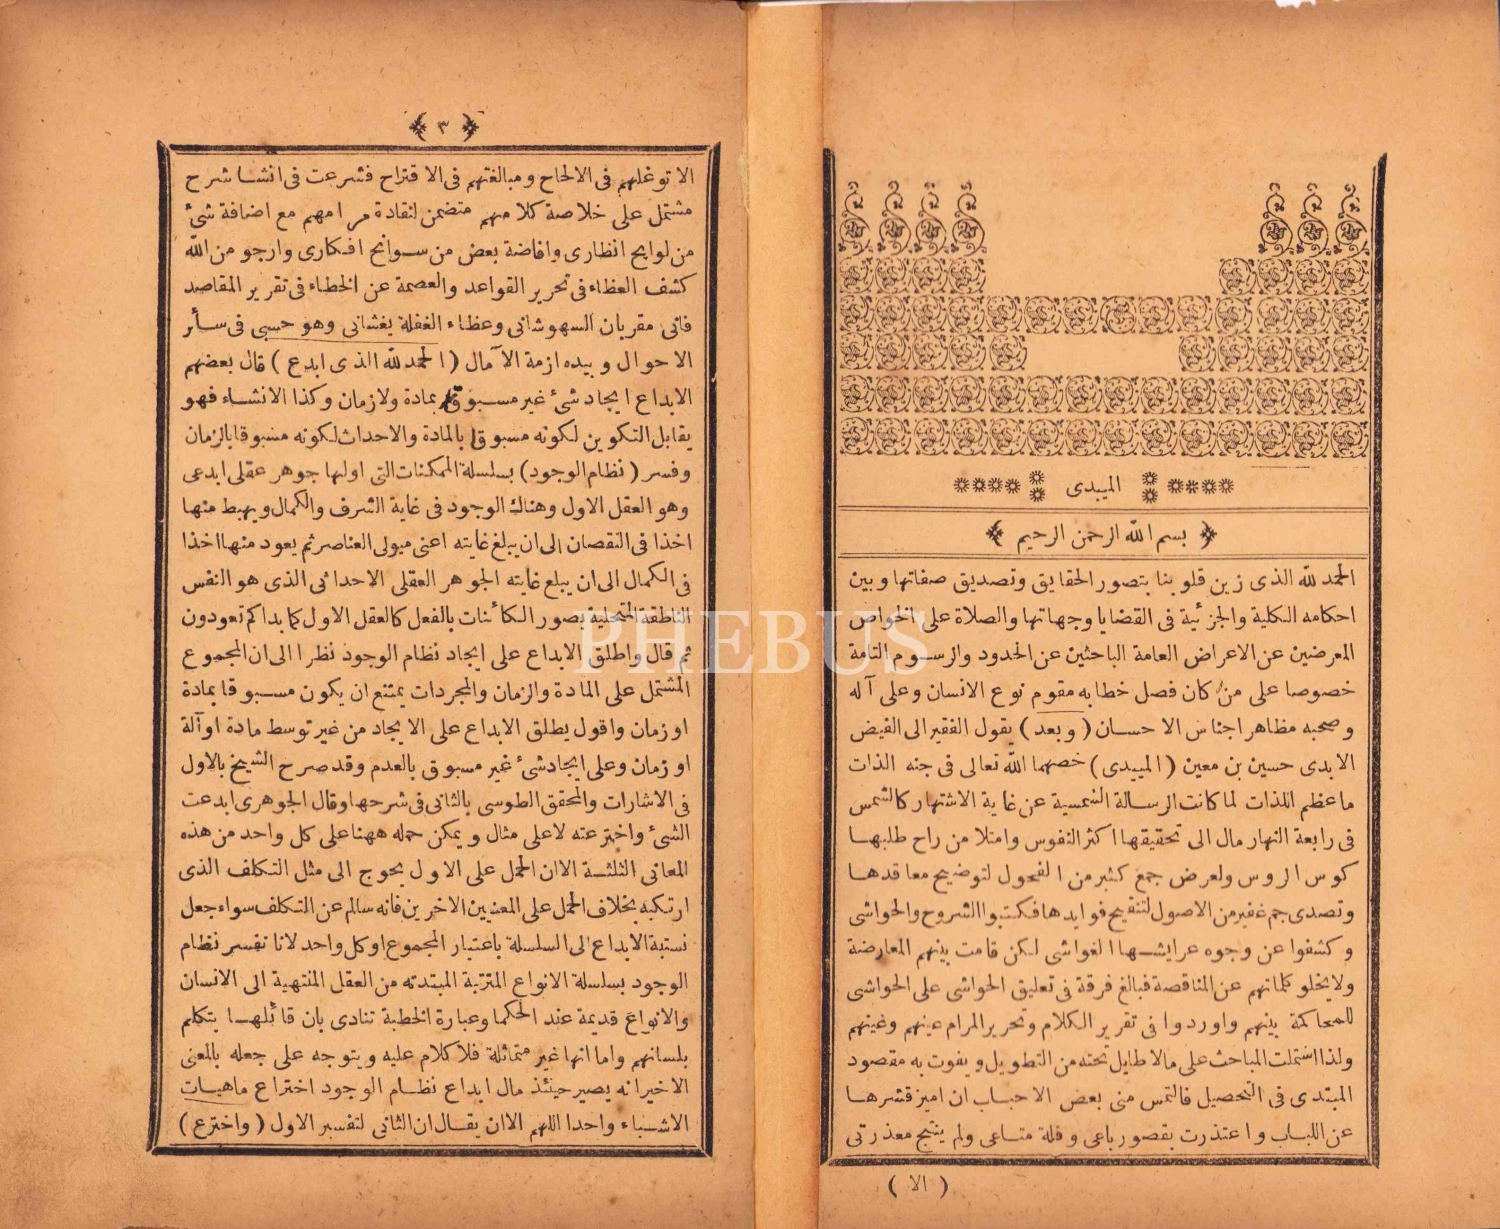 الميبدى
بسم الله الرحمن الرحيم
الحمد لله الذى زين قلوبنا بتصور الحقايق وتصديق صفاتها وبين
احكامه الكلية والجزئية فى القضايا وجهاتها والصلاة على الخواص
المعرضين عن الاعراض العامة الباحثين عن الحدود والرسوم التامة
خصوصا على من كان فصل خطابه مقوم نوع الانسان وعلى آله
وصحبه مظاهر اجناس الاحسان (وبعد) يقول الفقير الى الفيض
الابدى حسين بن معين (الميبدى) خصهما الله تعالى فى جنه الذات
ماعظم اللذات لما كانت الرسالة الشمسية عن غاية الاشتهار كالشمس
فى رابعة النهار مال الى تحقيقها اكثر النفوس وامتلا من راح طلبها
كوس الروس ولعرض جمع كثير من الفحول لتوضيح معاقدها
وتصدى جم غفير من الاصول لتنقيح فوايدها فكتبوا الشروح والحواشى
وكشفوا عن وجوه عرايشها الغواشى لكن قامت بينهم المعارضة
ولايخلو كلماتهم عن المناقصة فبالغ فرقة فى تعليق الحواشى على الحواشى
للمحاكمة بينهم واوردوا فى تقرير الكلام وتحرير المرام عينهم وغينهم
ولذا اشتملت المباحث على مالا طايل تحته من التطويل ويفوت به مقصود
المبتدى فى التحصيل فالتمس منى بعض الاحباب ان اميز قشرها
عن اللباب واعتذرت بقصور باعى وقلة متاعى ولم ينتج معذرتى
(الا)
٣
الا توغلهم فى الالحاح ومبالغتهم فى الاقتراح فشرعت فى انشا شرح
مشتمل على خلاصة كلامهم متضمن لنقادة مرامهم مع اضافة شئ
من لوايح انظارى وافاضة بعض من سوانح افكارى وارجو من الله
كشف الغطاء فى تحرير القواعد والعصمة عن الخطاء فى تقرير المقاصد
فانى مقربان السهو شانى وغطاء الغفلة يغشانى وهو حسبى فى سائر
الاحوال وبيده ازمة الآمال (الحمد لله الذى ابدع) قال بعضهم
الابداع ايجاد شئ غير مسبوق بمادة ولازمان وكذا الانشاء فهو
يقابل التكوين لكونه مسبوقا بالمادة والاحداث لكونه مسبوقا بالزمان
وفسر (نظام الوجود) بسلسلة الممكنات التى اولها جوهر عقلى ابدعى
وهو العقل الاول وهناك الوجود فى غاية الشرف والكمال ويهبط منها
اخذا فى النقصان الى ان يبلغ غايته اعنى هيولى العناصر ثم يعود منها اخذا
فى الكمال الى ان يبلغ غايته الجوهر العقلى الاحداثى الذى هو النفس
الناطقة المتحلية بصور الكائنات بالفعل كالعقل الاول كما بداكم تعودون
ثم قال واطلق الابداع على ايجاد نظام الوجود نظرا الى ان المجموع
المشتمل على المادة والزمان والمجردات يمتنع ان يكون مسبوقا بمادة
او زمان واقول يطلق الابداع على الايجاد من غير توسط مادة اوآلة
او زمان وعلى ايجاد شئ غير مسبوق بالعدم وقد صرح الشيخ بالاول
فى الاشارات والمحقق الطوسى بالثانى فى شرحها وقال الجوهرى ابدعت
الشئ واخترعته لاعلى مثال ويمكن حمله ههنا على كل واحد من هذه
المعانى الثلثة الا ان الحمل على الاول يحوج الى مثل التكلف الذى
ارتكبه بخلاف الحمل على المعنيين الاخرين فانه سالم عن التكلف سواء جعل
نسبة الابداع الى السلسلة باعتبار المجموع اوكل واحد لانا نفسر نظام
الوجود بسلسلة الانواع المترتبة المبتدئه من العقل المنتهية الى الانسان
والانواع قديمة عند الحكما وعبارة الخطبة تنادى بان قائلها يتكلم
بلسانهم واما انها غير متماثلة فلا كلام عليه ويتوجه على جعله بالمعنى
الاخير انه يصير حينئذ مال ابداع نظام الوجود اختراع ماهيات
الاشياء واحدا اللهم الا ان يقال ان الثانى لتفسير الاول (واخترع)
PHEBUS